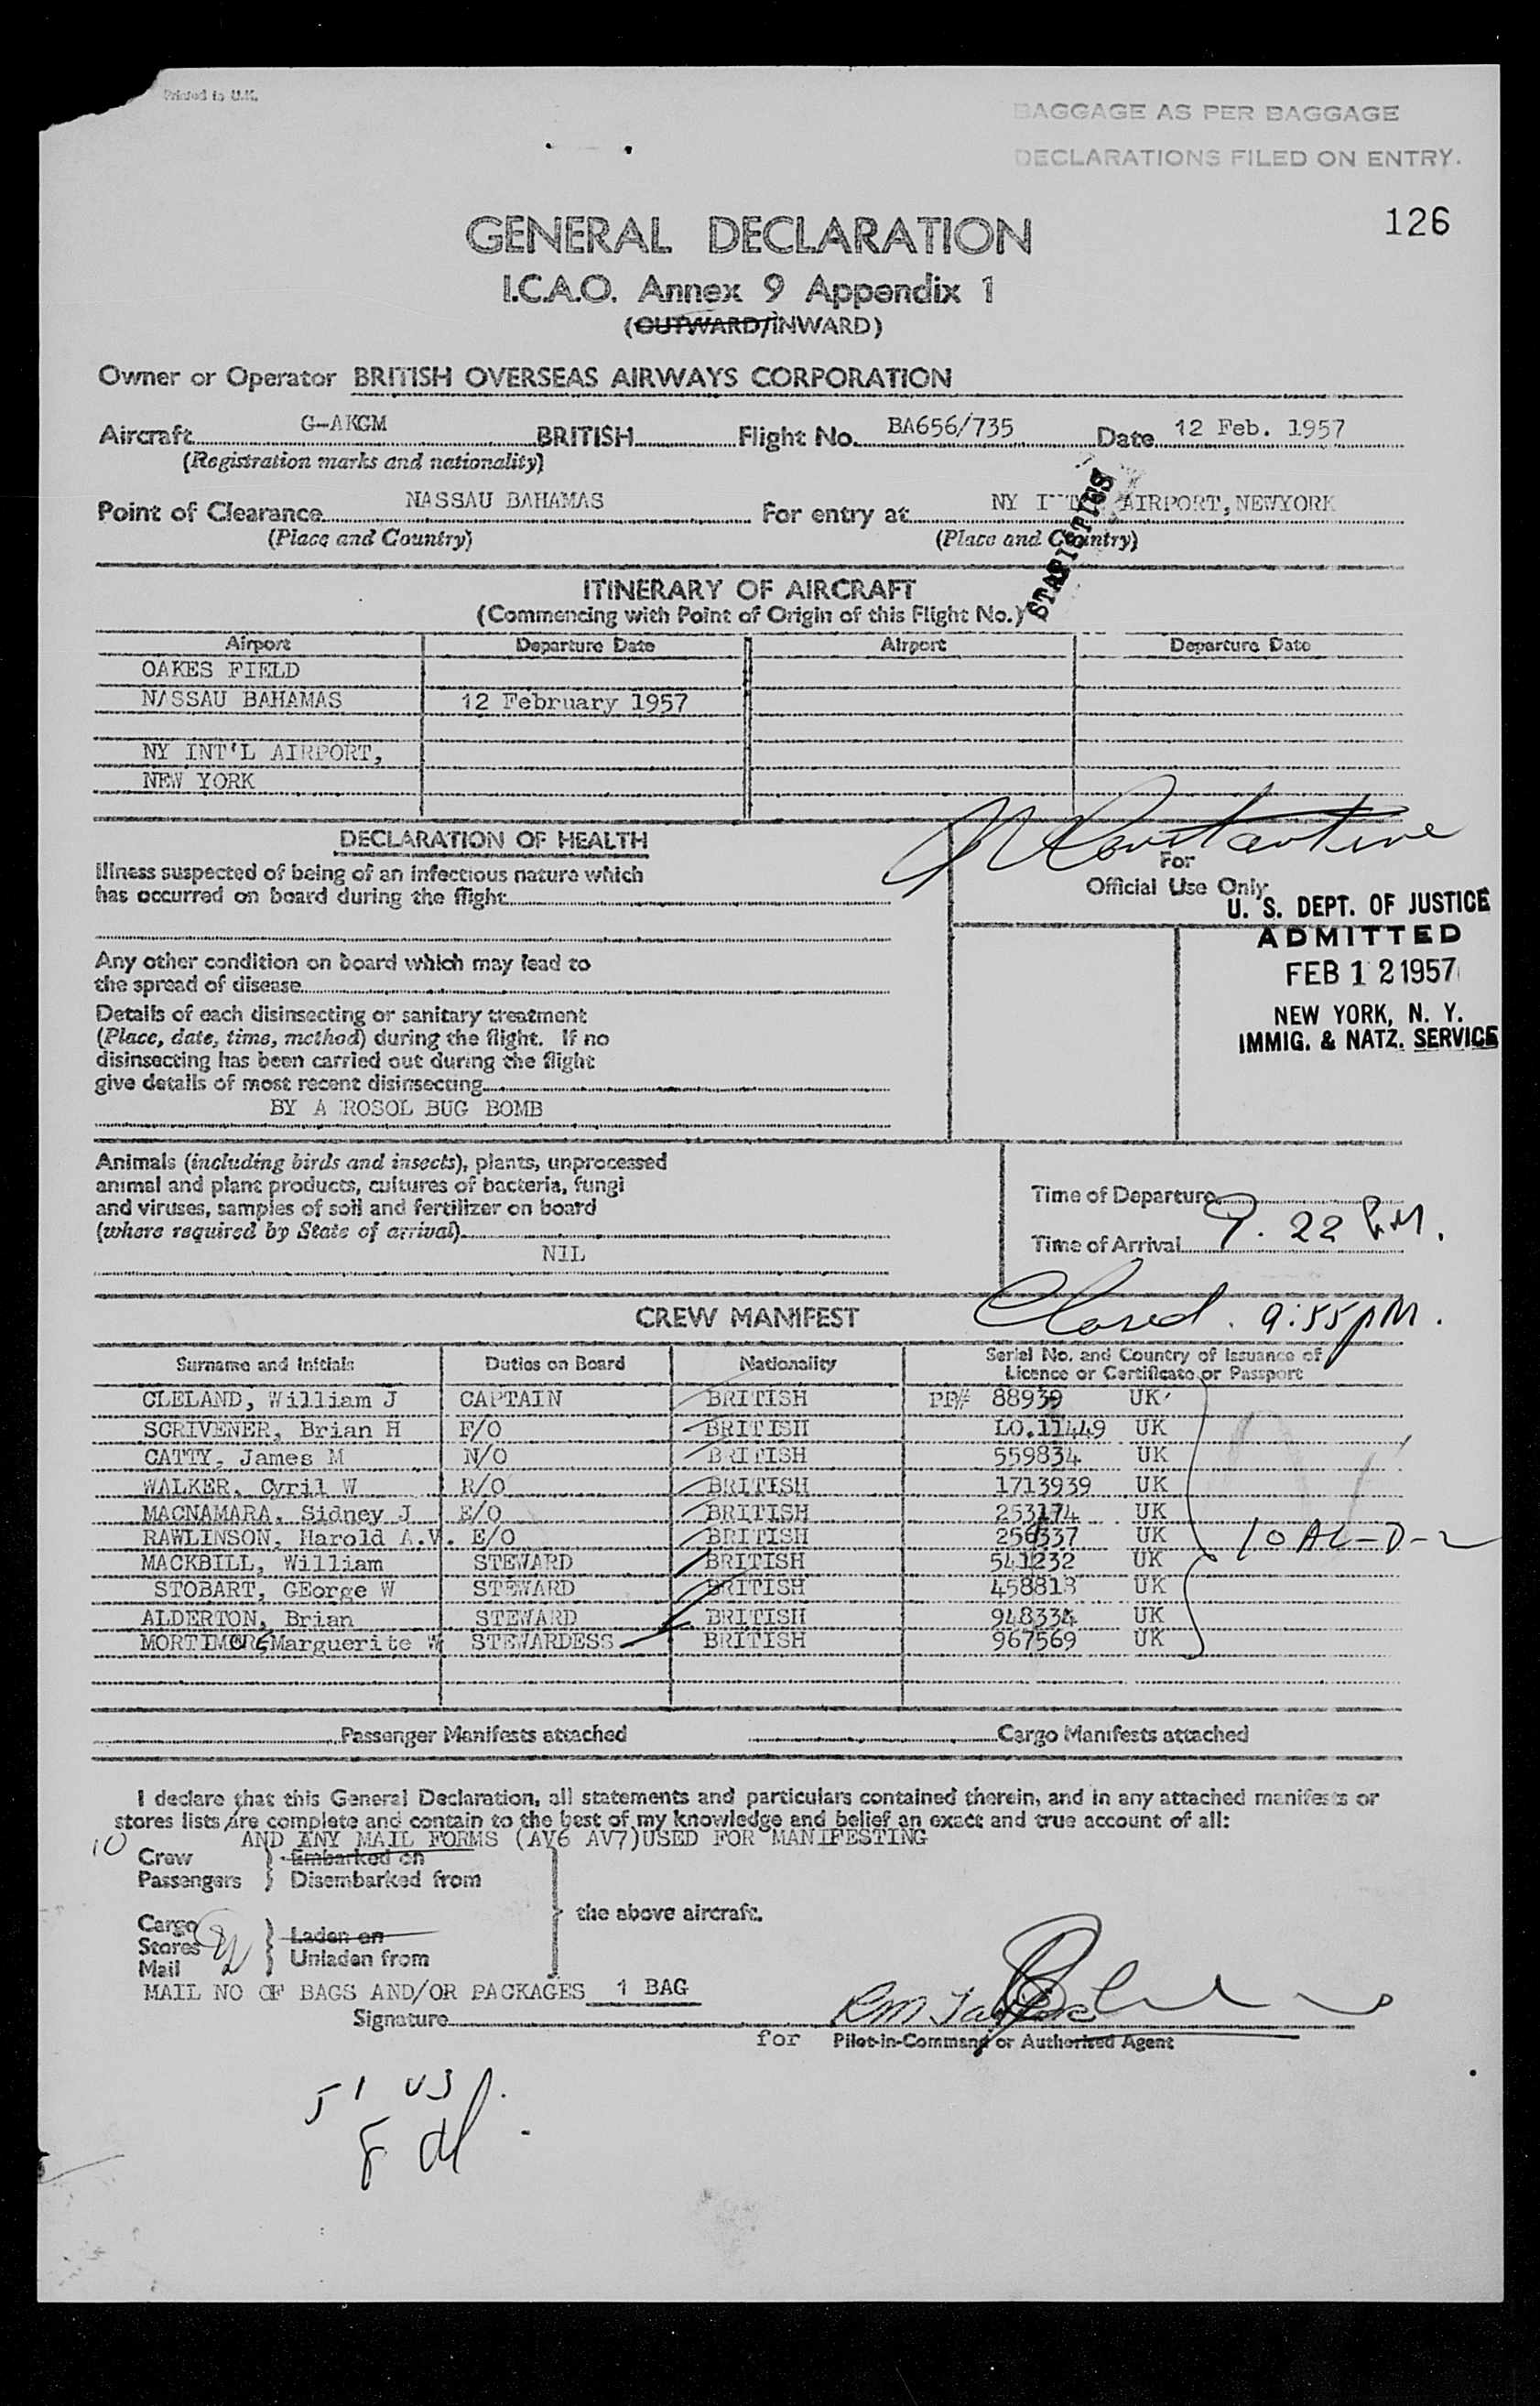 Printed in U.K.
BAGGAGE AS PER BAGGAGE
DECLARATIONS FILED ON ENTRY.
126
GENERAL DECLARATION
I.C.A.O. Annex 9 Appendix 1
(OUTWARD/INWARD)
Owner or Operator BRITISH OVERSEAS AIRWAYS CORPORATION
Aircraft G-AKGM BRITISH Flight No. BA656/735 Date 12 Feb. 1957
(Registration marks and nationality)
Point of Clearance NASSAU BAHAMAS For entry at NY AIRPORT, NEWYORK
(Place and Country) (Place and Country)
ITINERARY OF AIRCRAFT
(Commencing with Point of Origin of this Flight No.)
Airport Departure Date Airport Departure Date
OAKES FIELD
NASSAU BAHAMAS 12 February 1957
NY INT'L AIRPORT,
NEW YORK
DECLARATION OF HEALTH
Illness suspected of being of an infectious nature which
has occurred on board during the flight
Any other condition on board which may lead to
the spread of disease
Details of each disinsecting or sanitary treatment
(Place, date, time, method) during the flight. If no
disinsecting has been carried out during the flight
give details of most recent disinsecting
BY A ROSOL BUG BOMB
For
Official Use Only
U. S. DEPT. OF JUSTICE
ADMITTED
FEB 12 1957
NEW YORK, N. Y.
IMMIG. & NATZ. SERVICE
Animals (including birds and insects), plants, unprocessed
animal and plant products, cultures of bacteria, fungi
and viruses, samples of soil and fertilizer on board
(where required by State of arrival)
NIL
Time of Departure
Time of Arrival 9.22 P.M.
Closed. 9:55 PM.
CREW MANIFEST
Surname and Initials Duties on Board Nationality Serial No. and Country of Issuance of
Licence or Certificate or Passport
CLELAND, William J CAPTAIN BRITISH PP# 88939 UK
SCRIVENER, Brian H F/O BRITISH LO.11449 UK
CATTY, James M N/O BRITISH 559834 UK
WALKER, Cyril W R/O BRITISH 1713939 UK
MACNAMARA, Sidney J E/O BRITISH 253174 UK
RAWLINSON, Harold A.V. E/O BRITISH 256337 UK
10 AL-D-2
MACKBILL, William STEWARD BRITISH 541232 UK
STOBART, GEorge W STEWARD BRITISH 458818 UK
ALDERTON, Brian STEWARD BRITISH 948334 UK
MORTIMORE Marguerite W STEWARDESS BRITISH 967569 UK
Passenger Manifests attached Cargo Manifests attached
I declare that this General Declaration, all statements and particulars contained therein, and in any attached manifests or
stores lists are complete and contain to the best of my knowledge and belief an exact and true account of all:
AND ANY MAIL FORMS (AV6 AV7)USED FOR MANIFESTING
10
Crew Embarked on
Passengers Disembarked from
the above aircraft.
Cargo
Stores Laden on
Mail Unladen from
MAIL NO OF BAGS AND/OR PACKAGES 1 BAG
Signature
for Pilot-in-Command or Authorised Agent
51 US
8 al